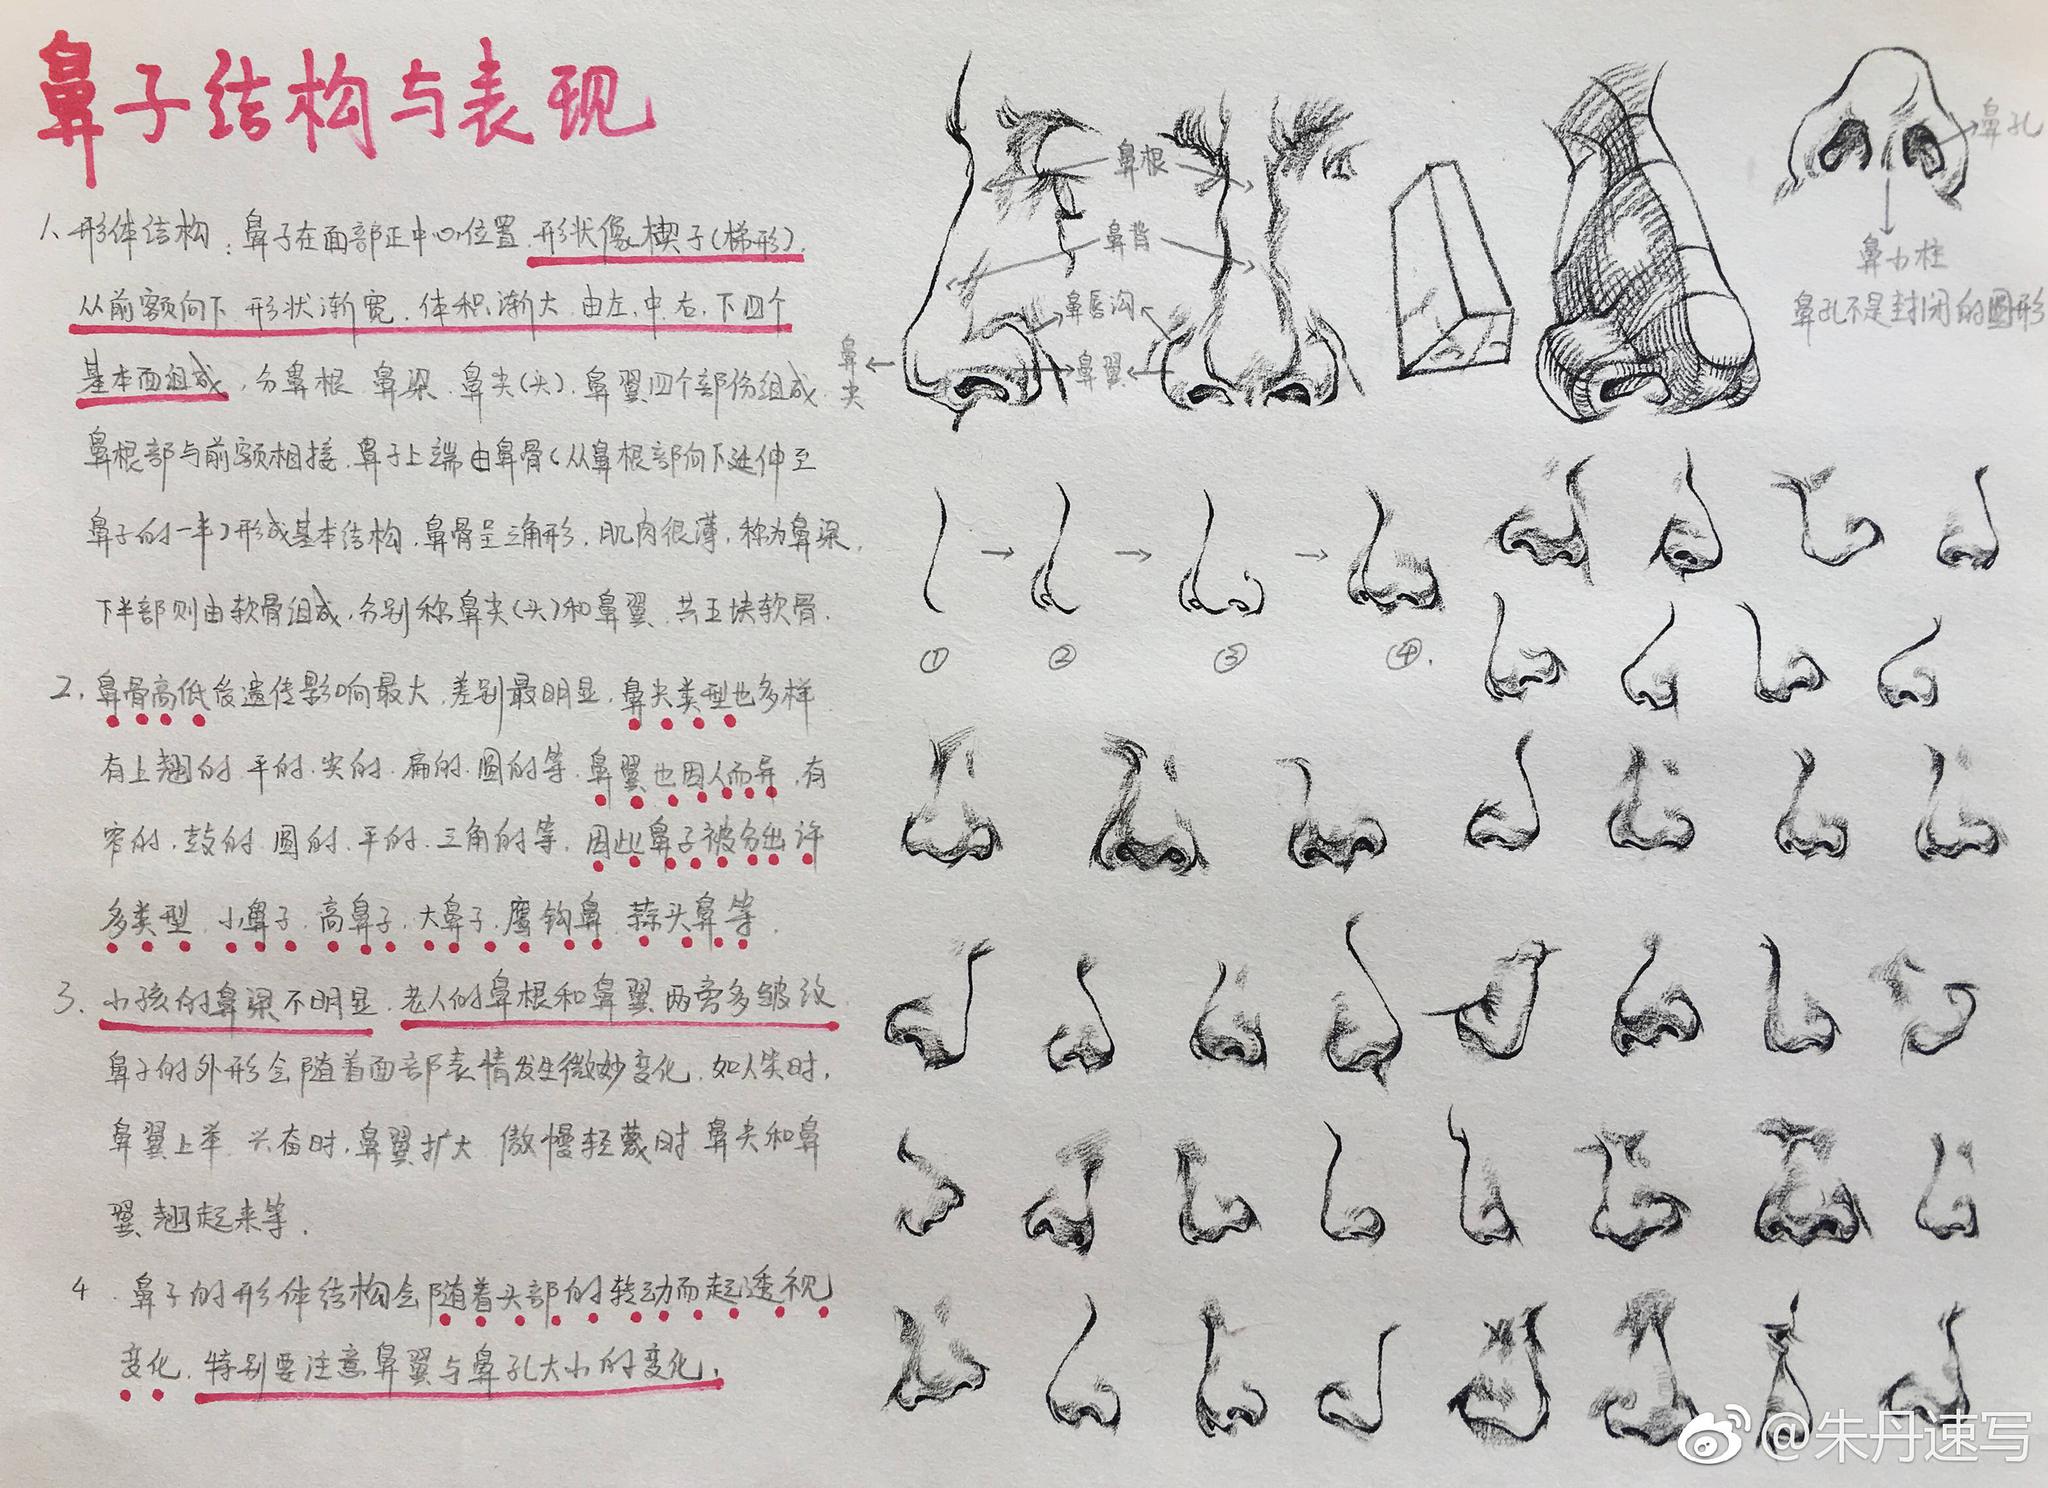 鼻子结构与表现
1、形体结构：鼻子在面部正中心位置.形状像楔子(梯形).
从前额向下.形状渐宽.体积渐大.由左.中.右.下四个
基本面组成.分鼻根.鼻梁.鼻尖(头).鼻翼四个部份组成.
鼻根部与前额相接.鼻子上端由鼻骨(从鼻根部向下延伸至
鼻子的一半)形成基本结构.鼻骨呈三角形.肌肉很薄.称为鼻梁.
下半部则由软骨组成.分别称鼻尖(头)和鼻翼.共五块软骨.
2.鼻骨高低受遗传影响最大.差别最明显.鼻尖类型也多样
有上翘的.平的.尖的.扁的.圆的等.鼻翼也因人而异.有
窄的.鼓的.圆的.平的.三角的等.因此鼻子被分出许
多类型.小鼻子.高鼻子.大鼻子.鹰钩鼻.蒜头鼻等.
3.小孩的鼻梁不明显.老人的鼻根和鼻翼两旁多皱纹
鼻子的外形会随着面部表情发生微妙变化.如人笑时.
鼻翼上举.兴奋时.鼻翼扩大.傲慢轻蔑时.鼻尖和鼻
翼翘起来等.
4.鼻子的形体结构会随着头部的转动而起透视
变化.特别要注意鼻翼与鼻孔大小的变化.
鼻根
鼻背
鼻唇沟
鼻翼
鼻尖
鼻孔
鼻小柱
鼻孔不是封闭的圆形
①
②
③
④.
@朱丹速写